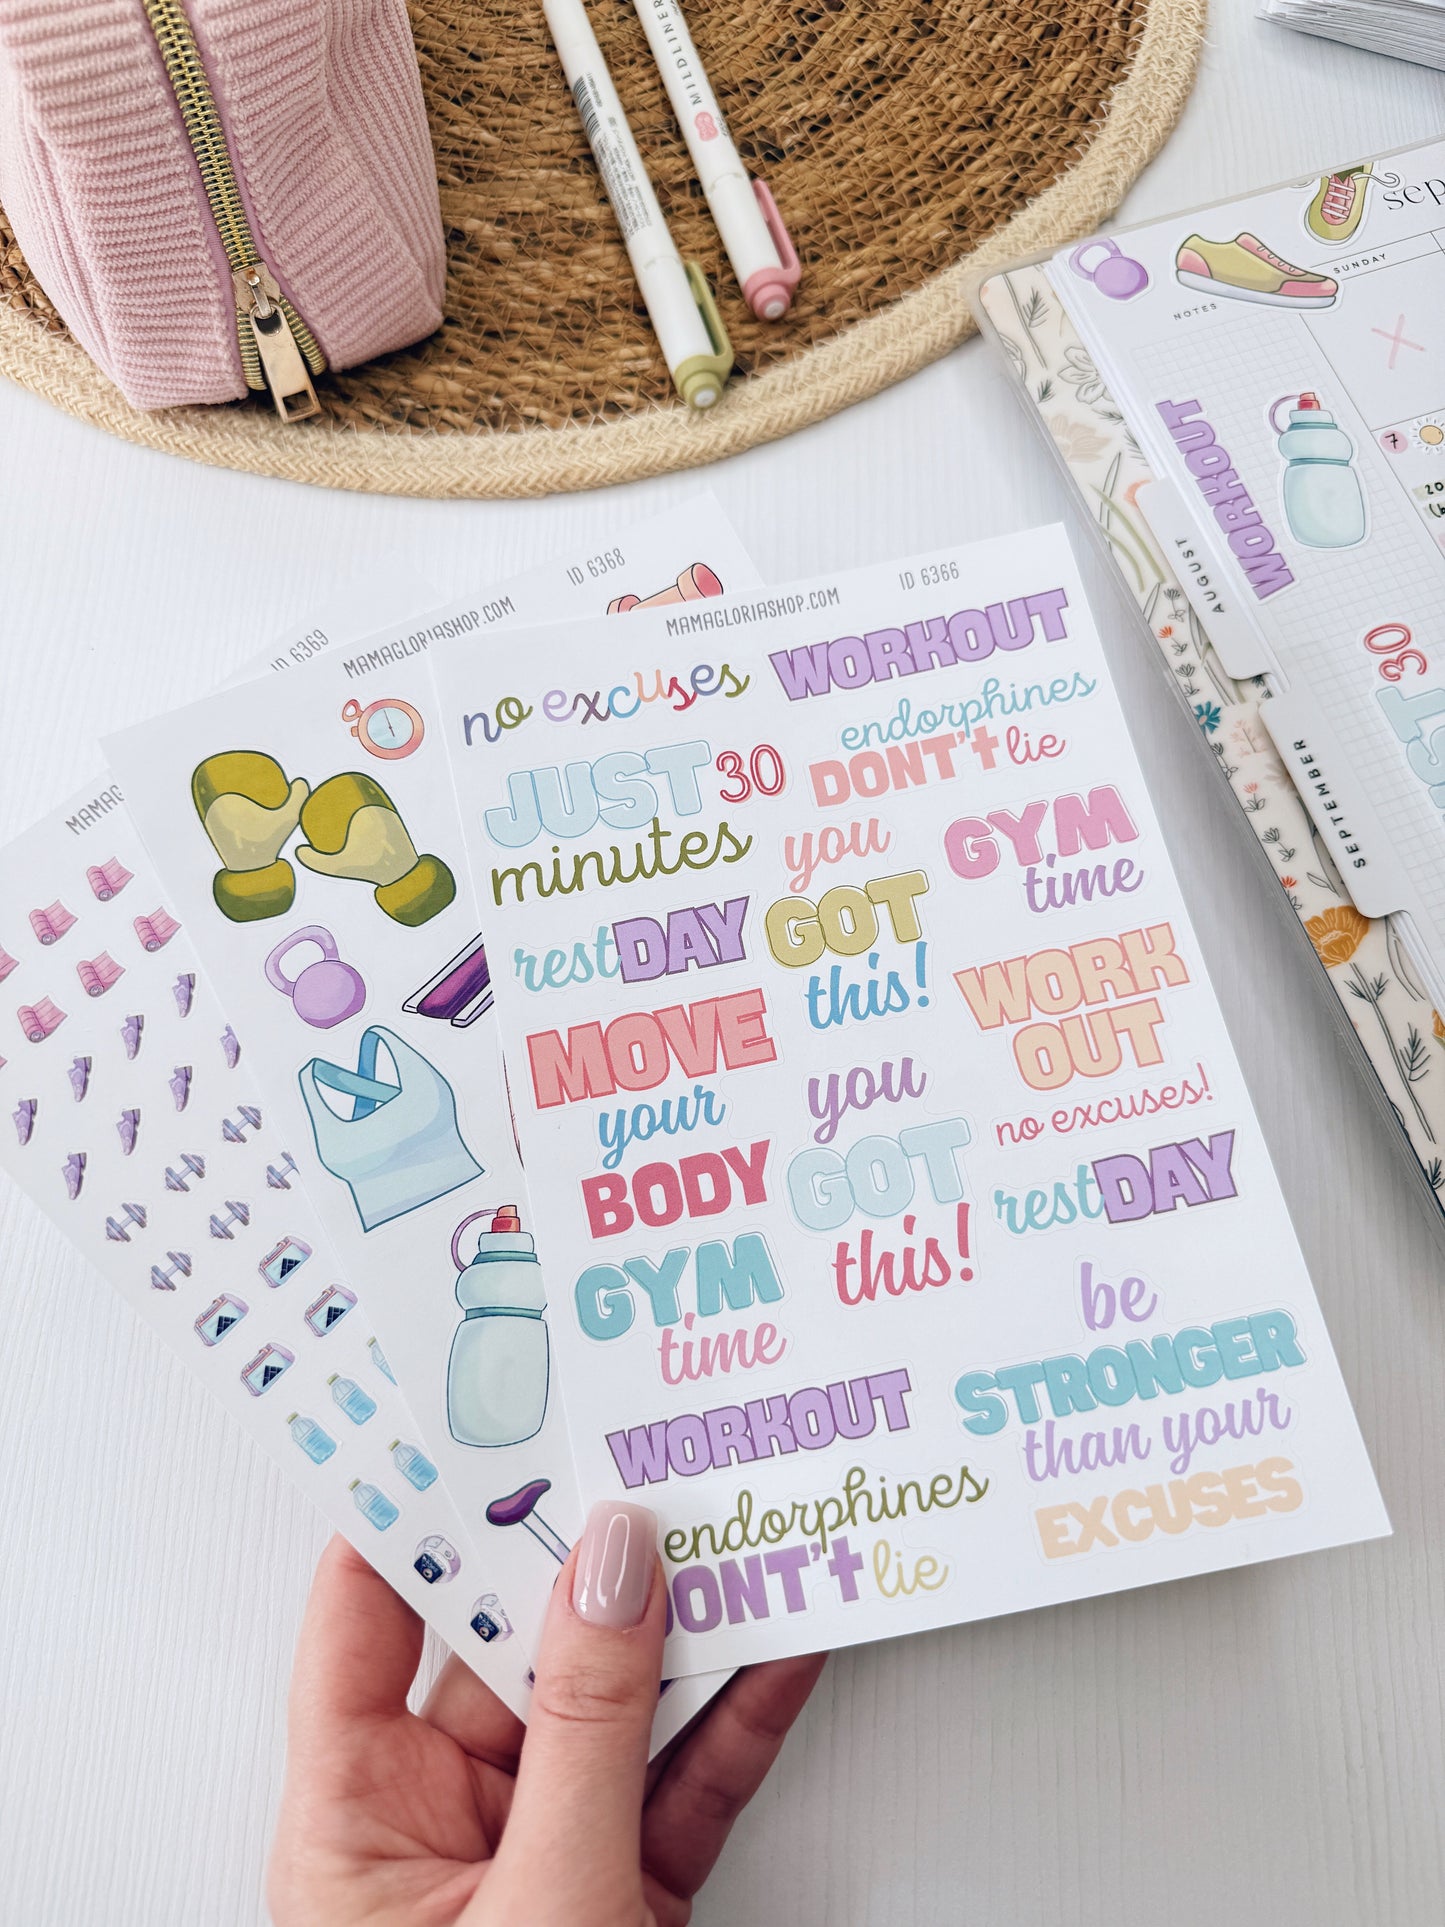 MILDLINER
sep
SUNDAY
NOTES
WORKOUT
7
20
AUGUST
30
SEPTEMBER
ID 6369
MAMAGLORIASHOP.COM
ID 6368
MAMAGLORIASHOP.COM
ID 6366
no excuses
WORKOUT
JUST 30
minutes
endorphines
DON'T lie
you
GOT
this!
GYM
time
restDAY
MOVE
your
BODY
WORK
OUT
no excuses!
you
GOT
this!
restDAY
GYM
time
be
STRONGER
than your
EXCUSES
WORKOUT
endorphines
DON'T lie